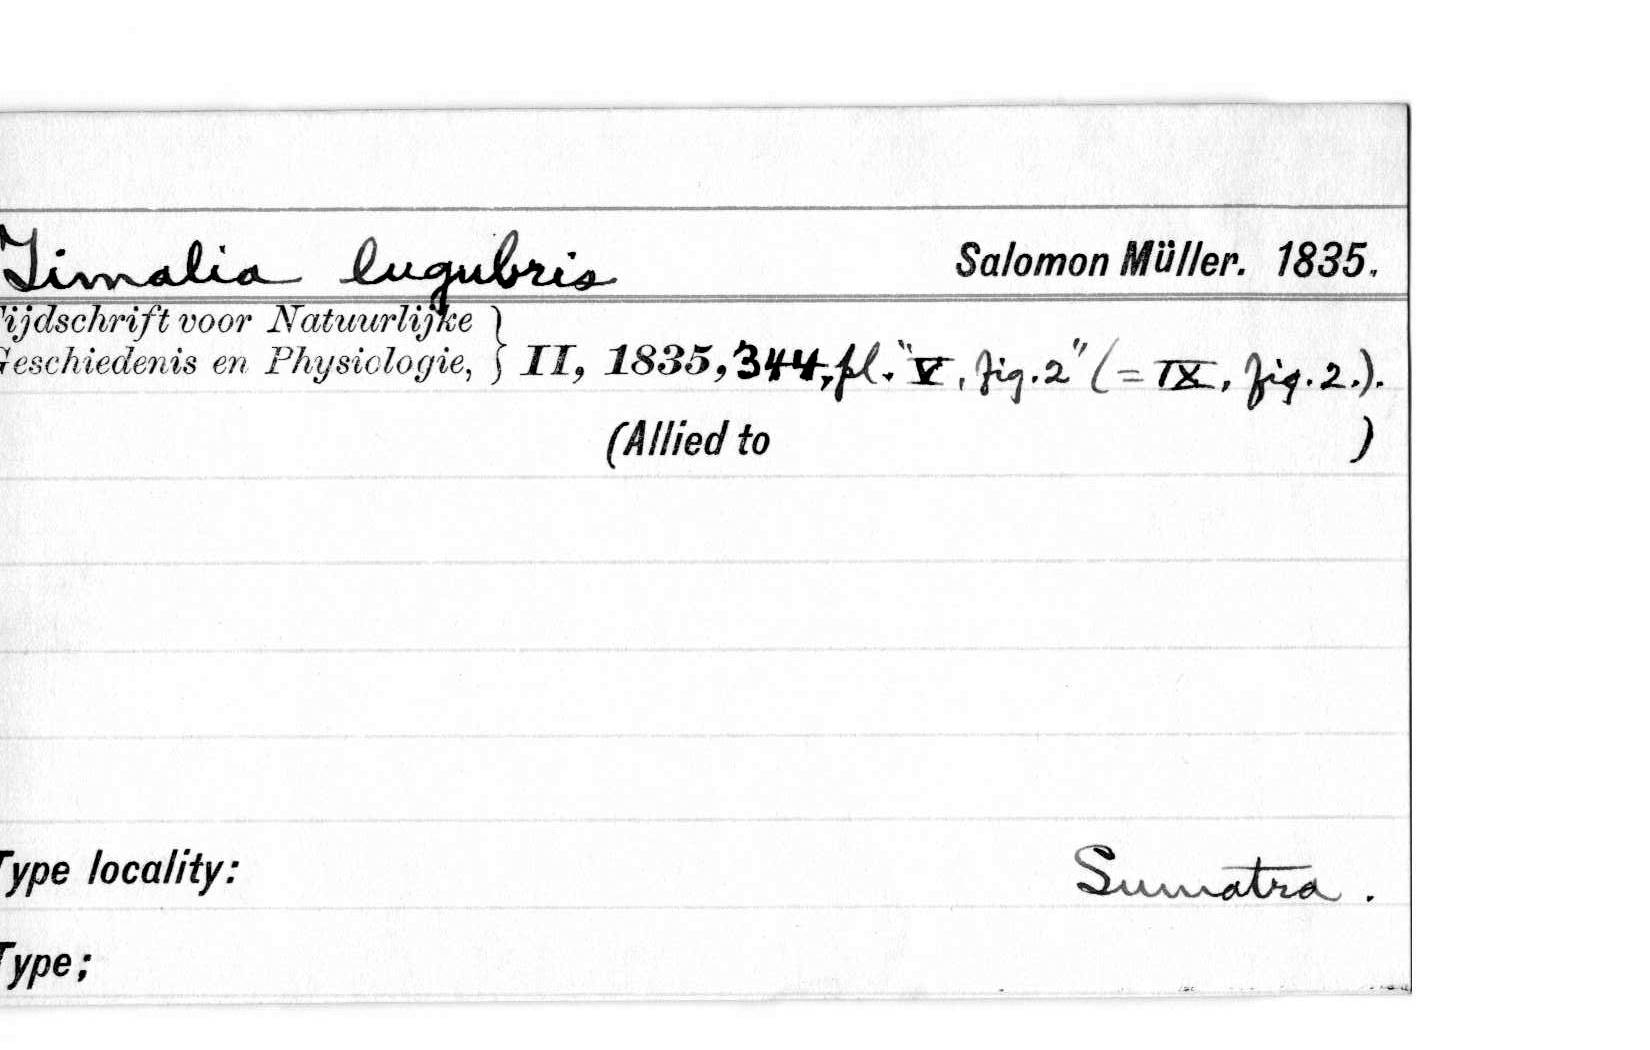 Timalia lugubris Salomon Müller. 1835.
Tijdschrift voor Natuurlijke
Geschiedenis en Physiologie, } II, 1835, 344, pl. "V, fig. 2" (= IX, fig. 2.).
(Allied to )
Type locality: Sumatra.
Type;